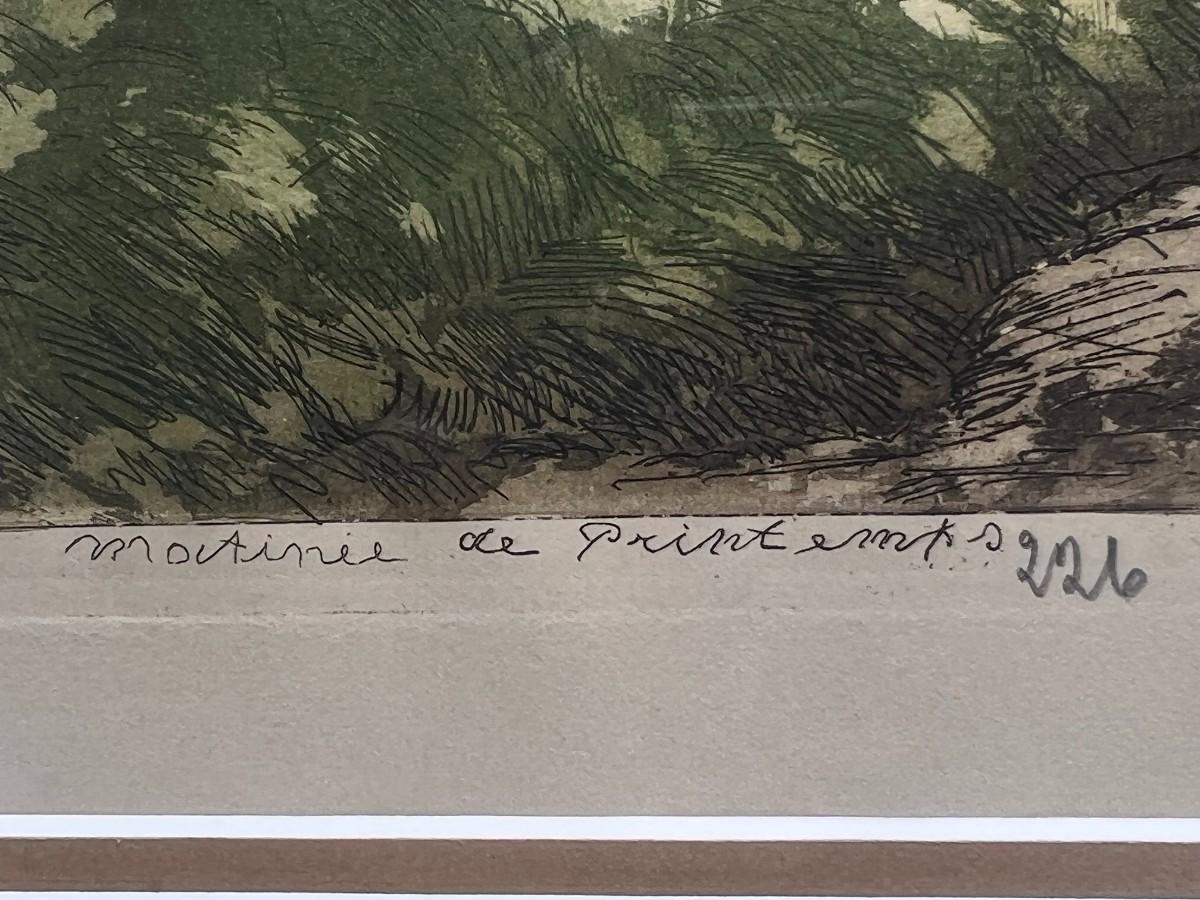 Matinée de Printemps 226